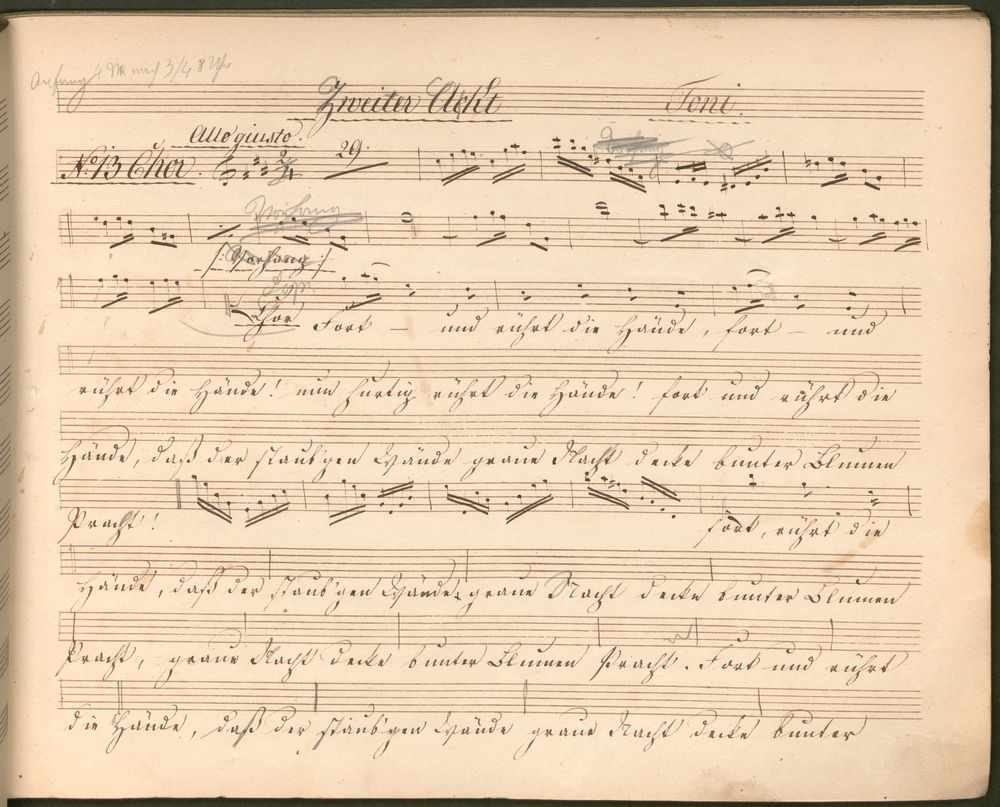 Anfang 4 3/4 8 Uhr
Zweiter Ackt Toni.
All⁰ giusto.
N⁰ 13 Chor. 2/4 29.
Vorhang
/: Vorhang :/
Chor Fort – und rührt die Hände, fort – und
rührt die Hände! nun hurtig rührt die Hände! fort und rührt die
Hände, daß der staub'gen Wände graue Nacht decke bunter Blumen
Pracht! fort, rührt die
Hände, daß der staub'gen Wände graue Nacht decke bunter Blumen
Pracht, graue Nacht decke bunter Blumen Pracht. Fort und rührt
die Hände, daß der staub'gen Wände graue Nacht decke bunter